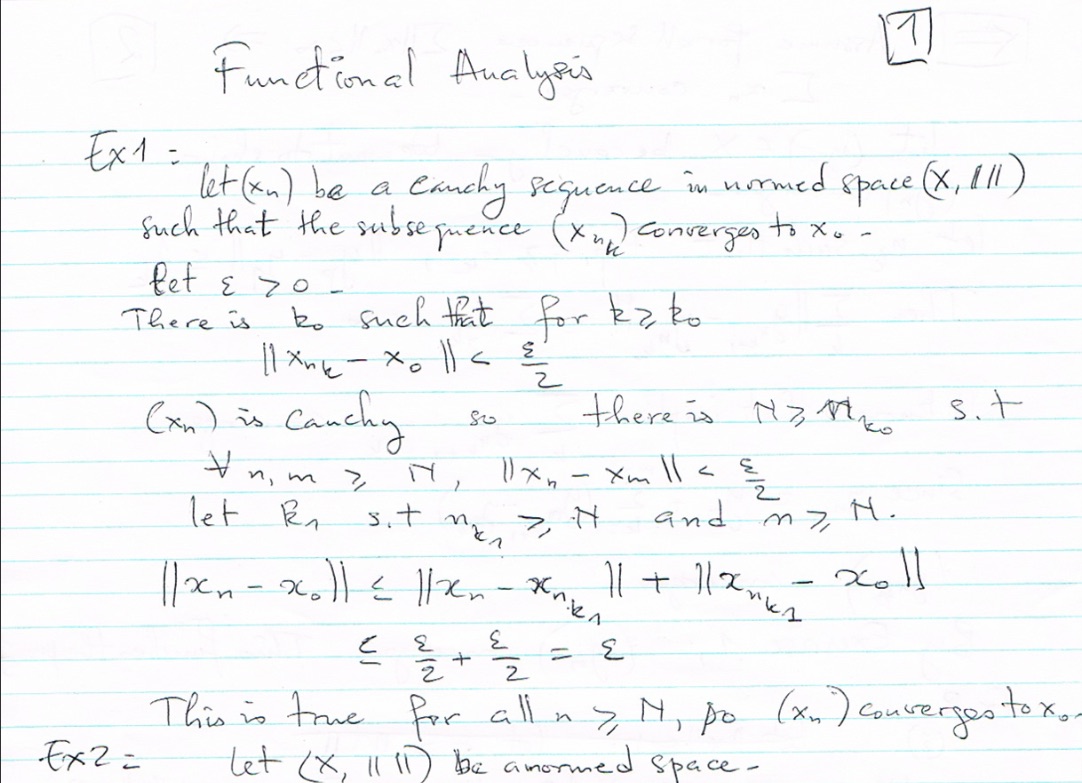 1
Functional Analysis
Ex1 =
let (xₙ) be a cauchy sequence in normed space (X, ‖ ‖)
such that the subsequence (x_{n_k}) converges to x₀ -
let ε > 0 -
There is k₀ such that for k ≥ k₀
‖x_{n_k} - x₀‖ < ε/2
(xₙ) is Cauchy so there is N ≥ n_{k₀} s.t
∀ n, m ≥ N, ‖xₙ - xₘ‖ < ε/2
let k₁ s.t n_{k₁} ≥ N and n ≥ N.
‖xₙ - x₀‖ ≤ ‖xₙ - x_{n_{k₁}}‖ + ‖x_{n_{k₁}} - x₀‖
≤ ε/2 + ε/2 = ε
This is true for all n ≥ N, so (xₙ) converges to x₀.
Ex2 = let (X, ‖ ‖) be a normed space -